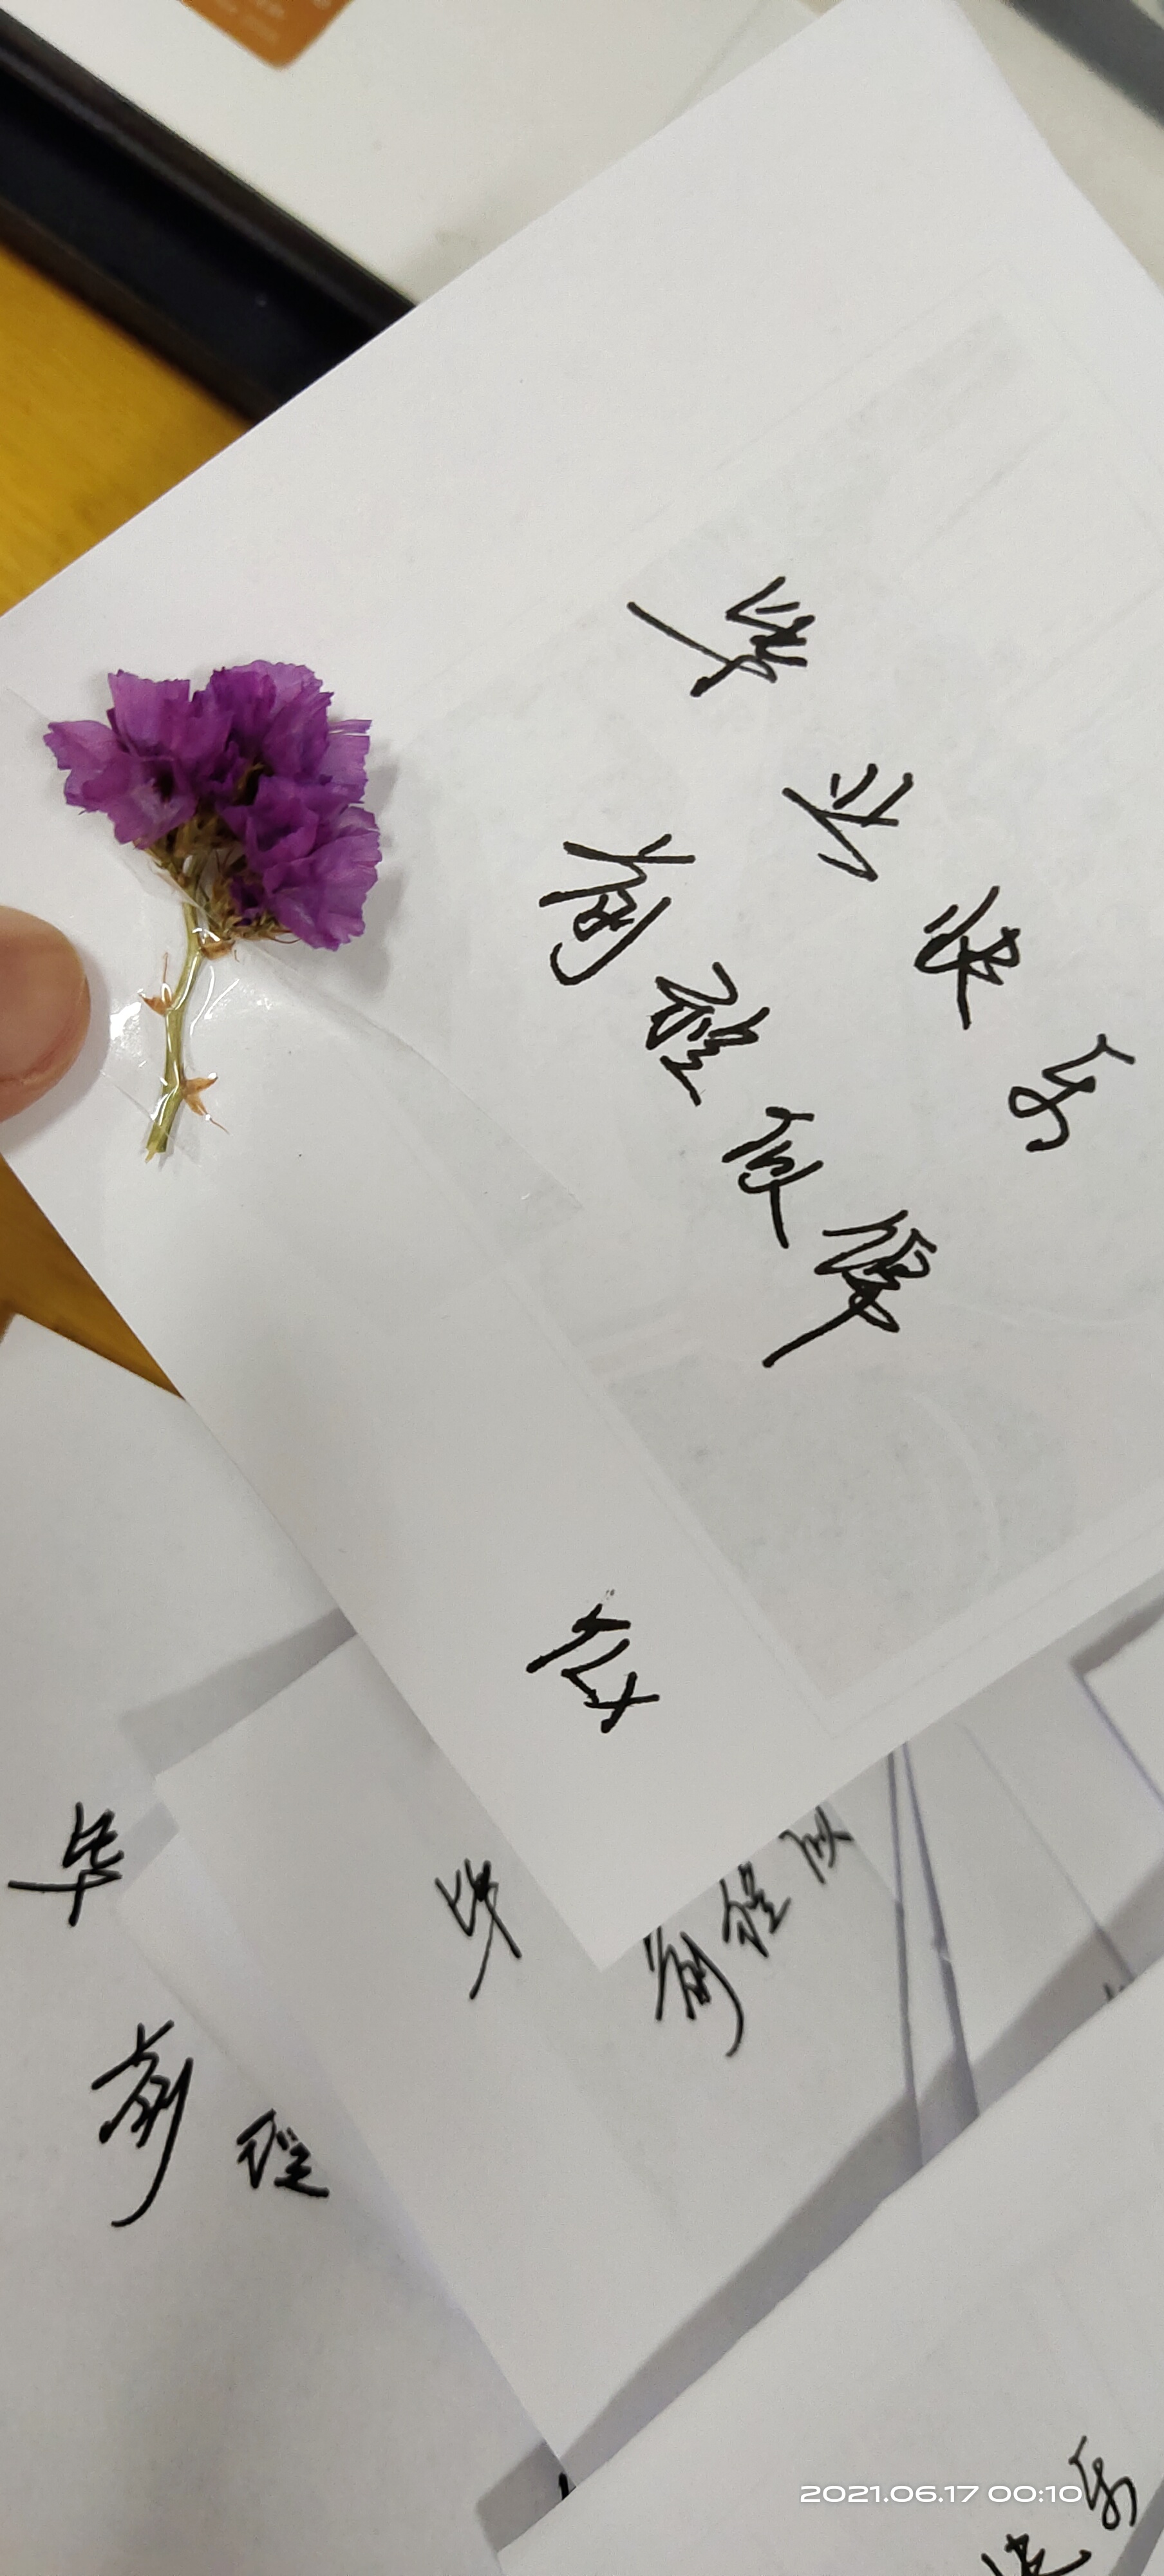 毕业快乐
前程似锦
毕
前程
毕
前程似
快乐
2021.06.17 00:10